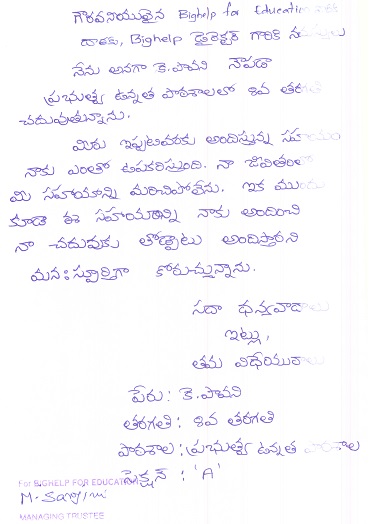 గౌరవనీయులైన Bighelp for Education
దాతకు, Bighelp డైరెక్టర్ గారికి నమస్కారములు
నేను అనగా కె.పావని
ప్రభుత్వ ఉన్నత పాఠశాలలో 8వ తరగతి
చదువుతున్నాను.
మీరు ఇప్పటివరకు అందిస్తున్న సహాయం
నాకు ఎంతో ఉపకరిస్తుంది. నా జీవితంలో
మీ సహాయాన్ని మరిచిపోలేను. ఇక ముందు
కూడా ఈ సహాయాన్ని నాకు అందించి
నా చదువుకు తోడ్పాటు అందిస్తారని
మనఃస్పూర్తిగా కోరుచున్నాను.
సదా ధన్యవాదాలు
ఇట్లు,
తమ విధేయురాలు
పేరు: కె.పావని
తరగతి: 8వ తరగతి
పాఠశాల: ప్రభుత్వ ఉన్నత పాఠశాల
సెక్షన్ : 'A'
For BIGHELP FOR EDUCATION
MANAGING TRUSTEE